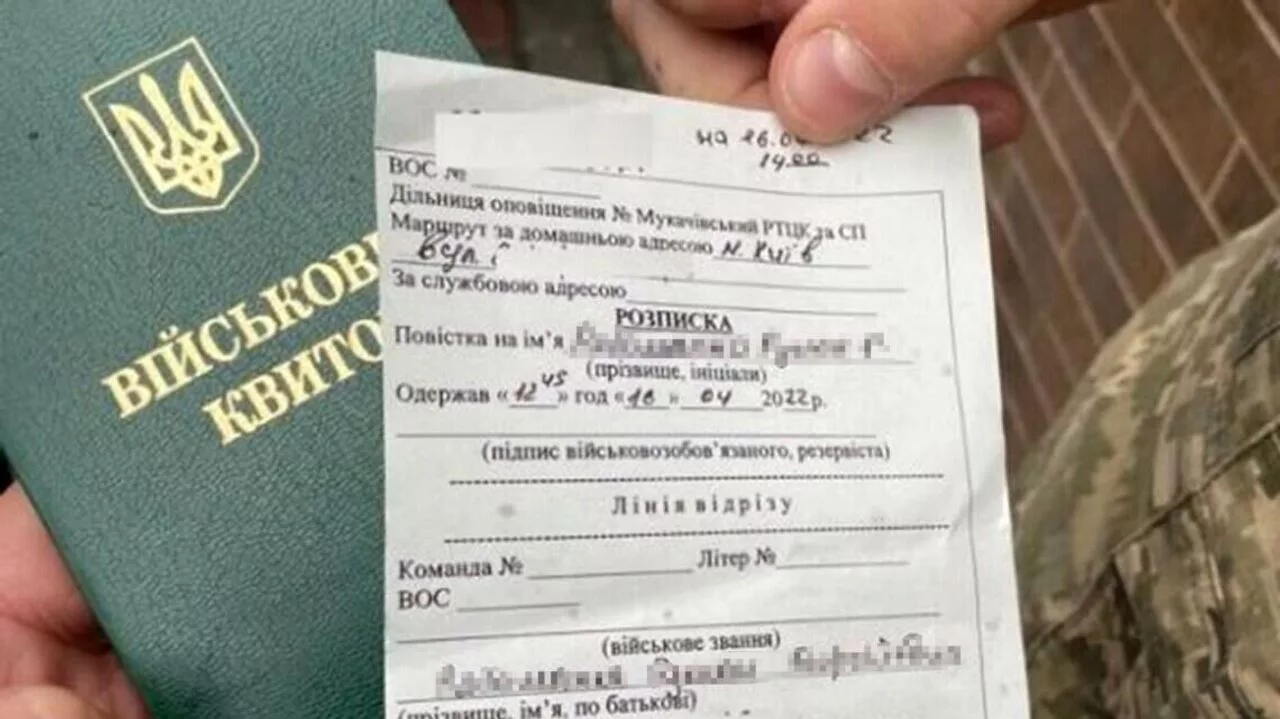 ВІЙСЬКОВ
КВИТО
на 16.0 22
14.00
ВОС №
Дільниця оповіщення № Мукачівський РТЦК за СП
Маршрут за домашньою адресою м. Київ
вул
За службовою адресою
РОЗПИСКА
Повістка на ім'я
(прізвище, ініціали)
Одержав «12 45» год «16» 04 2022 р.
(підпис військовозобов'язаного, резервіста)
Лінія відрізу
Команда № Літер №
ВОС
(військове звання)
(прізвище, ім'я, по батькові)